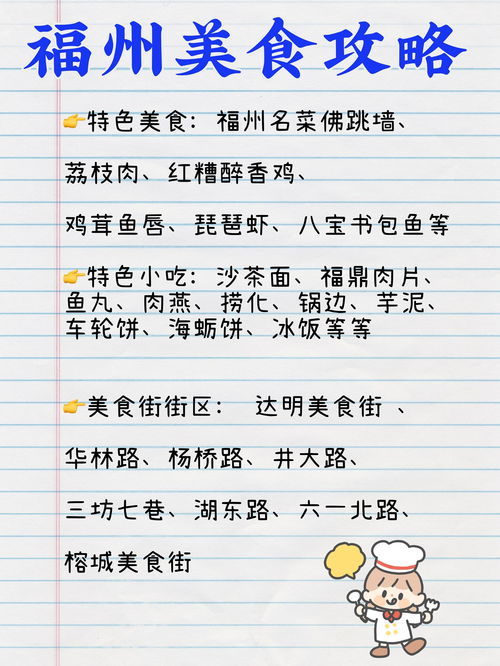 福州美食攻略
👉特色美食：福州名菜佛跳墙、
荔枝肉、红糟醉香鸡、
鸡茸鱼唇、琵琶虾、八宝书包鱼等
👉特色小吃：沙茶面、福鼎肉片、
鱼丸、肉燕、捞化、锅边、芋泥、
车轮饼、海蛎饼、冰饭等等
👉美食街街区： 达明美食街 、
华林路、杨桥路、井大路、
三坊七巷、湖东路、六一北路、
榕城美食街